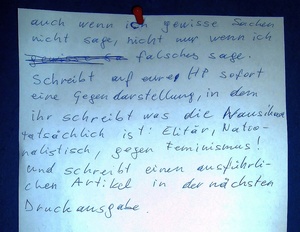 auch wenn ich gewisse Sachen
nicht sage, nicht nur wenn ich
falsches sage.
Schreibt auf eure HP sofort
eine Gegendarstellung, in dem
ihr schreibt was die Nausikaa
tatsächlich ist: Elitär, Natio-
nalistisch, gegen Feminismus!
und schreibt einen ausführli-
chen Artikel in der nächsten
Druckausgabe.